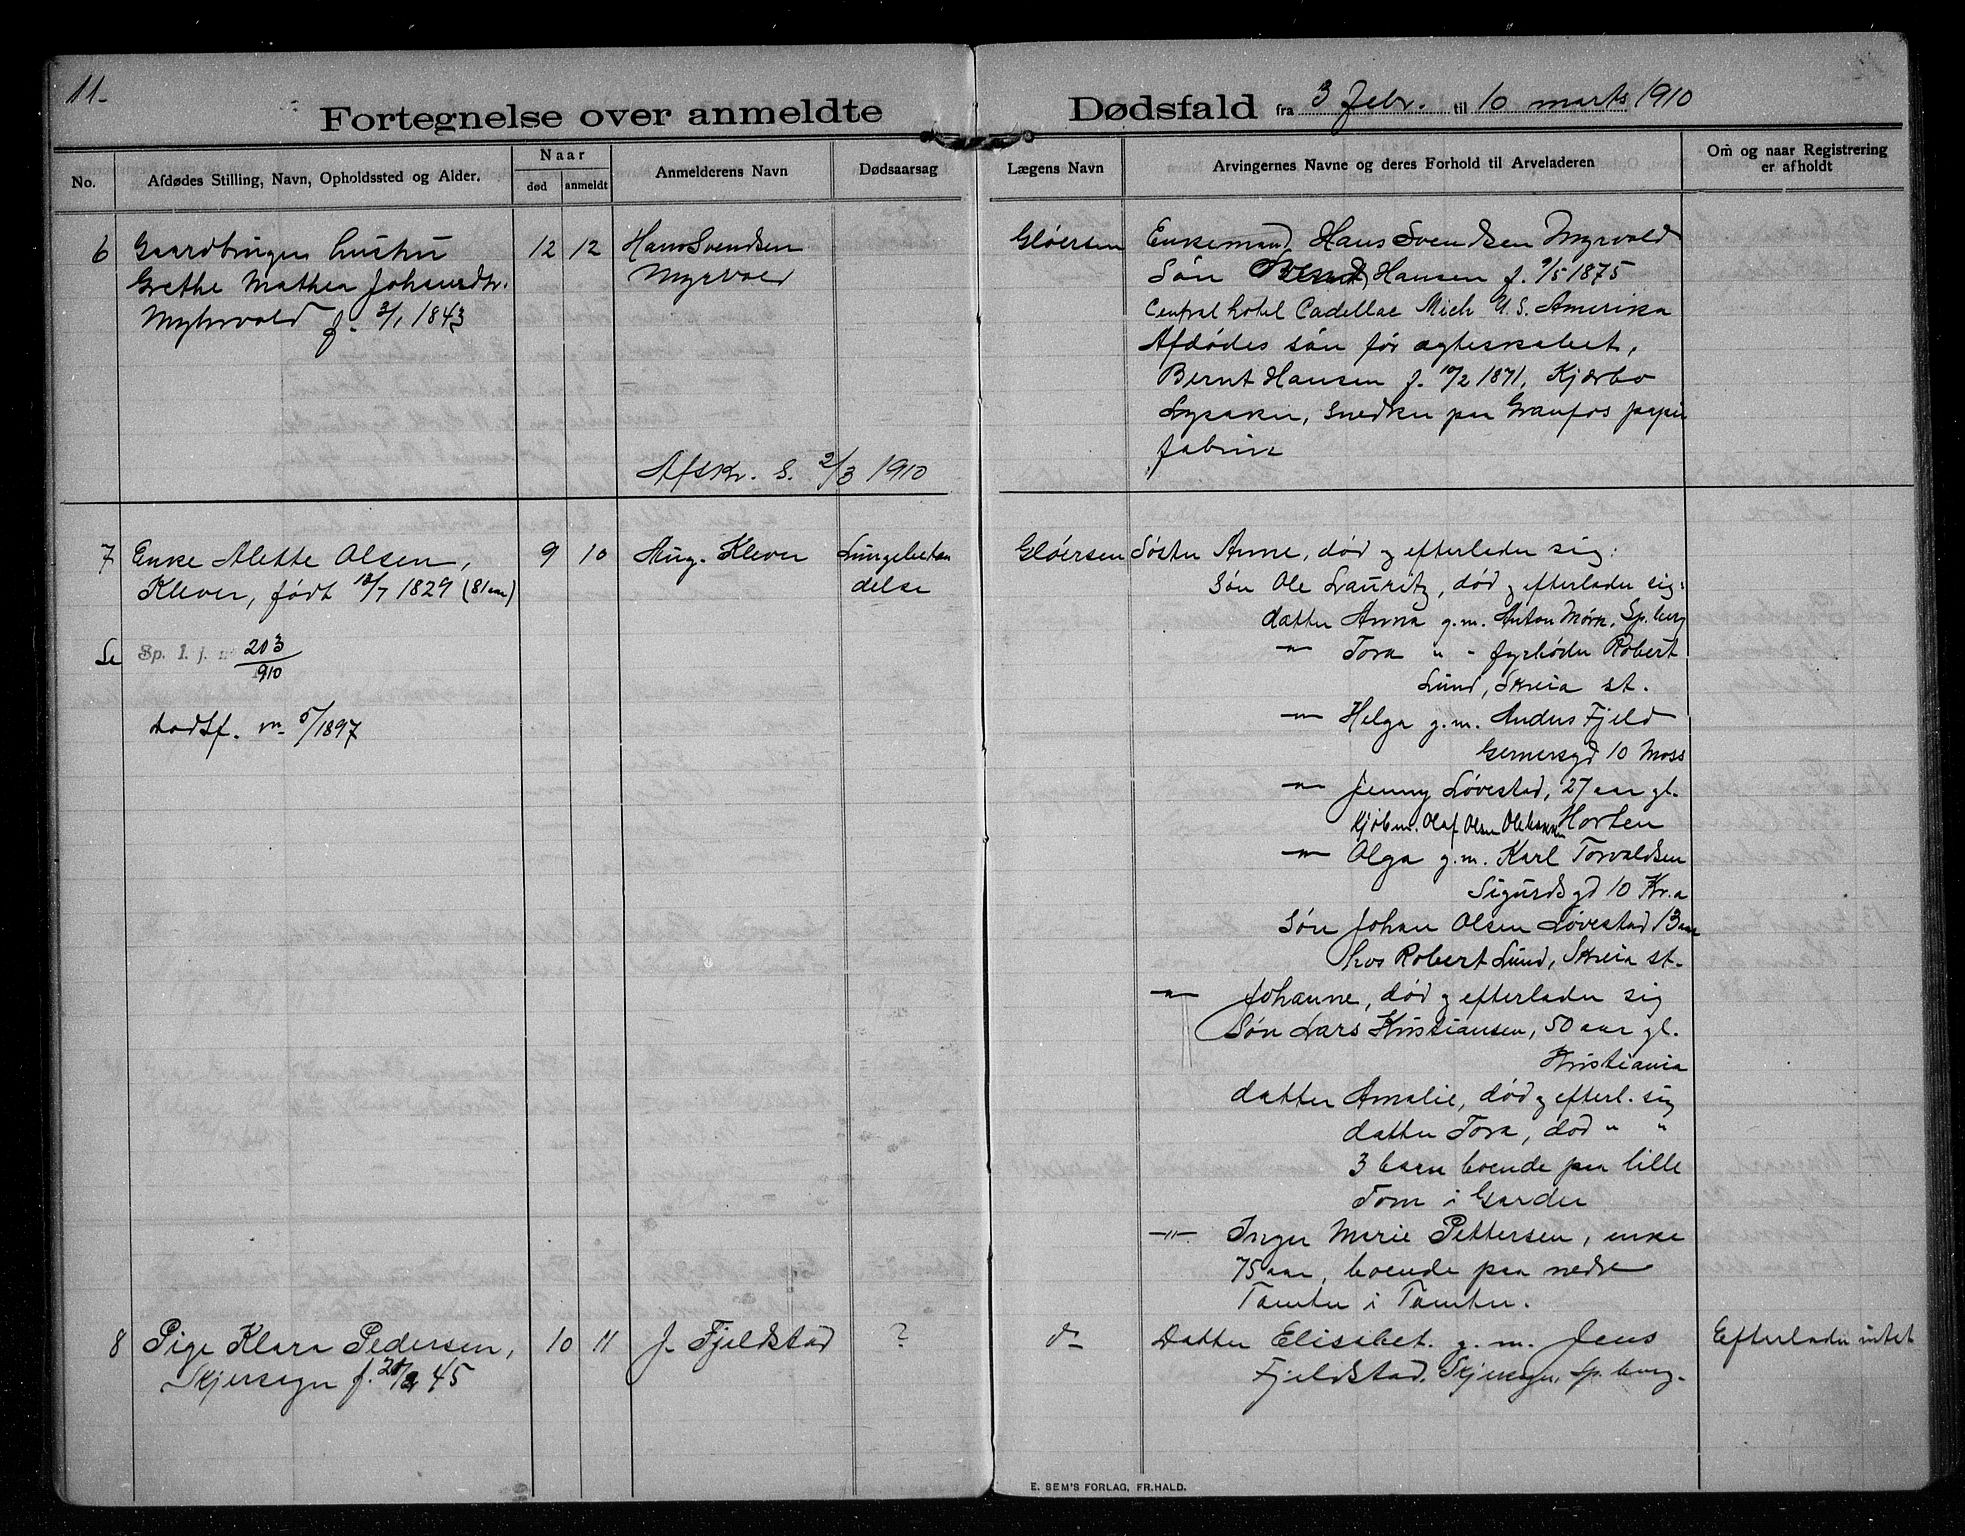 11.
Fortegnelse over anmeldte Dødsfald fra 3 febr. til 10 marts 1910
No.
Afdødes Stilling, Navn, Opholdssted og Alder.
Naar
død
anmeldt
Anmelderens Navn
Dødsaarsag
Lægens Navn
Arvingernes Navne og deres Forhold til Arveladeren
Om og naar Registrering
er afholdt
6
Gaardbruger hustru
Grethe Mathea Johansdtr.
Myhrvold f. 3/1 1843
12
12
Hans Svendsen
Myrvold
Afskr. S. 2/3 1910
Gløersen
Enkemand Hans Svendsen Myrvold
Søn Bernt Hansen f. 9/5 1875
Central hotel Cadellac Mich U.S. Amerika
Afdødes søn før ægteskabet,
Bernt Hansen f. 10/2 1871, Kjærbo
Lysaker, snedker paa Granfos papir
fabrik
7
Enke Alette Olsen,
Klever, født 18/7 1829 (81 aar)
Se Sp. l. j. n 203/910
dødsf. 5/1897
9
10
Aug. Klever
Lungebetæn
delse
Gløersen
Søster Anne, død og efterlader sig:
Søn Ole Lauritz, død og efterlader sig:
datter Anna g.m. Anton Mørk, Sp.berg
—"— Tora " " fyrbøder Robert
Lund, Skreia st.
—"— Helga g.m. Anders Fjeld
Gernersgd 10 Moss
—"— Jenny Løvestad, 27 aar gl.
kjøbm. Olaf Olsen Horten
—"— Olga g.m. Karl Torvaldsen
Sigurdsgd 10 Kr.a
Søn Johan Olsen Løvestad 13 aar
hos Robert Lund, Skreia st.
—"— Johanne, død og efterlader sig
Søn Lars Kristiansen, 50 aar gl.
Kristiania
datter Amalie, død og efterl. sig
datter Tora, død " "
3 barn boende paa lille
Tom i Garder
—"— Inger Marie Pettersen, enke
75 aar, boende paa nedre
Tomter i Tomter.
8
Pige Klara Pedersen,
Skjersagn f. 20/2 45
10
11
J. Fjeldstad
?
do
Datter Elisabet g.m. Jens
Fjeldstad, Skjersagn, Sp.berg.
Efterlader intet
E. SEM'S FORLAG, FR.HALD.